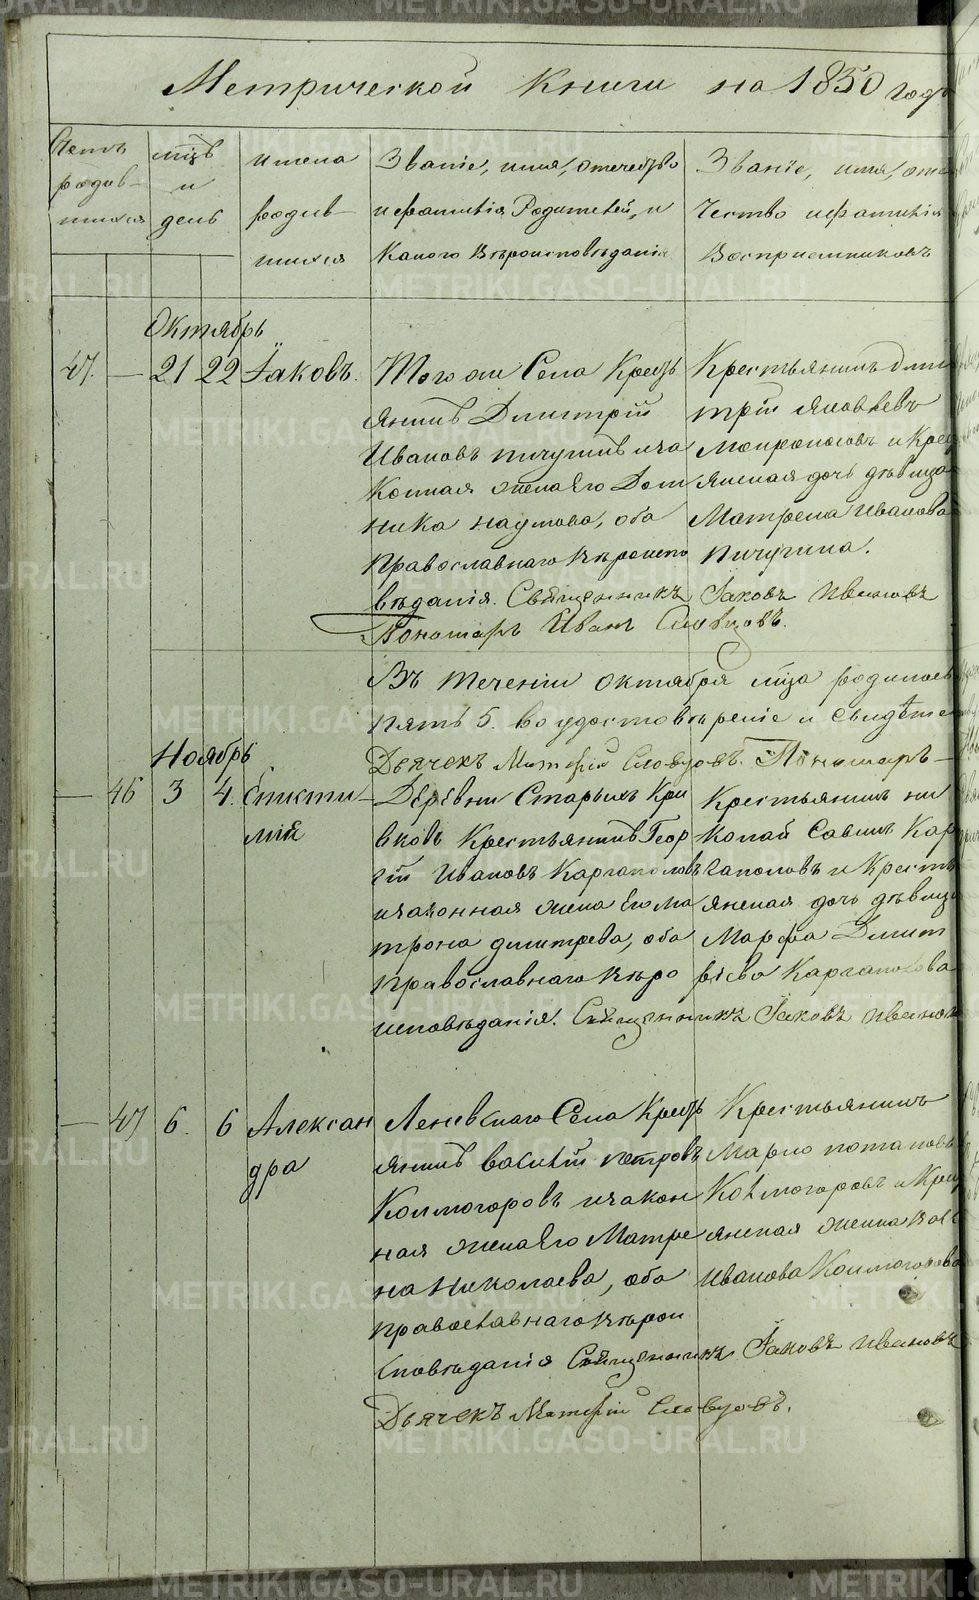 Метрической Книги на 1850 годъ
Счетъ родив- шихся
мцъ и день
имена родив- шихся
Званіе, имя, отечество
и фамилія Родителей, и
Какого Вѣроисповѣданія
Званіе, имя, оте
чество и фамилія
Воспріемниковъ
Октябрь
47. — 21 22 Іаковъ.
Того же Села Кресть
янинъ Димитрій
Ивановъ Пичугинъ и за
конная жена его Дом
ника Наумова, оба
Православнаго Вѣроиспо
вѣданія. Священникъ Іаковъ Ивановъ
Крестьянинъ Дми
трій Яковлевъ
и Крес
янская дочь дѣвица
Матрена Иванова
Пичугина.
Пономарь Иванъ Словцовъ.
Въ теченіи октября мца родилось
пять 5. во удостовѣреніе и свидѣте
Дьячекъ Матфій Словцовъ. Пономарь
Ноябрь
— 46 3 4. Епикти-
мій
Деревни Старыхъ Кри
вковъ Крестьянинъ Геор
гій Ивановъ Каргаполовъ
и законная жена Его Ма
трона Димитрева, оба
Православнаго Вѣро
исповѣданія. Священникъ Іаковъ Иванов
Крестьянинъ Ни
колай Савинъ Кар
гаполовъ и Кресть
янская дочь дѣвица
Марфа Димит
ріева Каргаполова
— 47 6. 6 Алексан
дра
Леневскаго Села Кресть
янинъ Василій Петровъ
Колмогоровъ и закон
ная жена Его Матре
на Николаева, оба
Православнаго Вѣрои
сповѣданія Священникъ Іаковъ Ивановъ
Крестьянинъ
Марко Потаповъ
Колмогоровъ и Крес
янская женка
Иванова Колмогорова
Дьячекъ Матфій Словцовъ.
METRIKI.GASO-URAL.RU